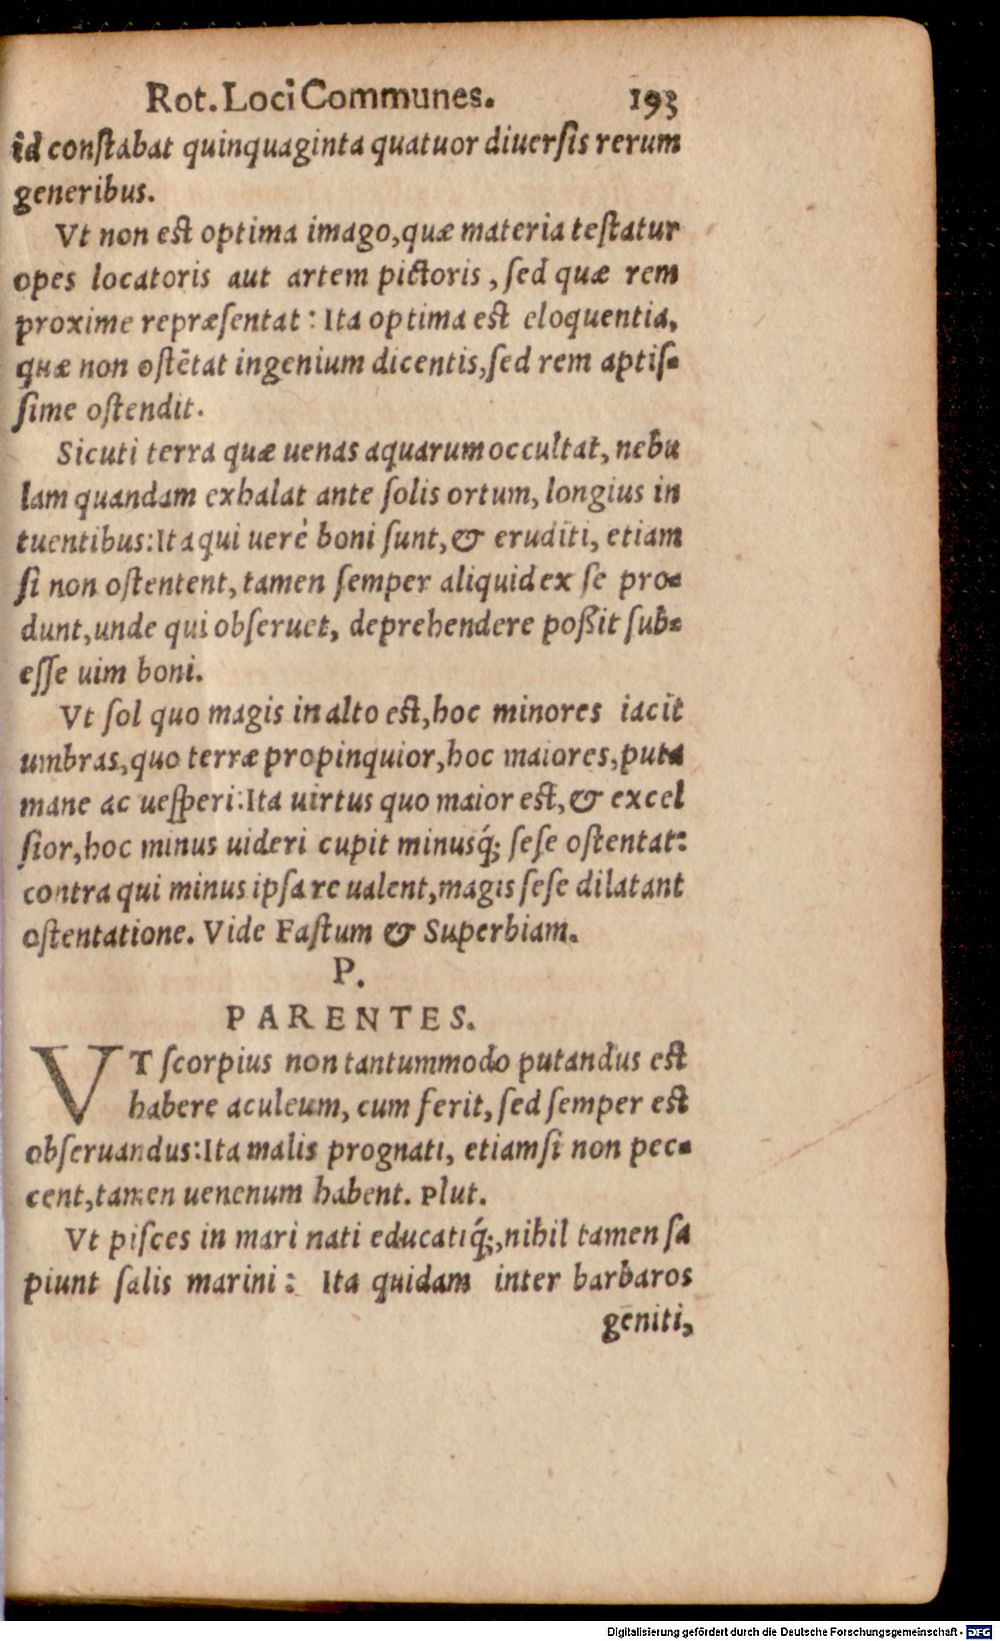 Rot. Loci Communes. 193
id conſtabat quinquaginta quatuor diuerſis rerum
generibus.
Vt non eſt optima imago, quæ materia teſtatur
opes locatoris aut artem pictoris, ſed quæ rem
proxime repræſentat: Ita optima est eloquentia,
quæ non oſtētat ingenium dicentis, ſed rem aptiſ-
ſime oſtendit.
Sicuti terra quæ uenas aquarum occultat, nebu
lam quandam exhalat ante ſolis ortum, longius in
tuentibus: Ita qui uerè boni ſunt, & eruditi, etiam
ſi non oſtentent, tamen ſemper aliquid ex ſe pro-
dunt, unde qui obſeruet, deprehendere poßit ſub-
eſſe uim boni.
Vt ſol quo magis in alto eſt, hoc minores iacit
umbras, quo terræ propinquior, hoc maiores, puta
mane ac ueſperi: Ita uirtus quo maior eſt, & excel
ſior, hoc minus uideri cupit minusq́; ſeſe oſtentat:
contra qui minus ipſa re ualent, magis ſeſe dilatant
oſtentatione. Vide Faſtum & Superbiam.
P.
PARENTES.
VT ſcorpius non tantummodo putandus eſt
habere aculeum, cum ferit, ſed ſemper eſt
obſeruandus: Ita malis prognati, etiamſi non pec-
cent, tamen uenenum habent. Plut.
Vt piſces in mari nati educatiq́;, nihil tamen ſa
piunt ſalis marini: Ita quidam inter barbaros
geniti,
Digitalisierung gefördert durch die Deutsche Forschungsgemeinschaft - DFG